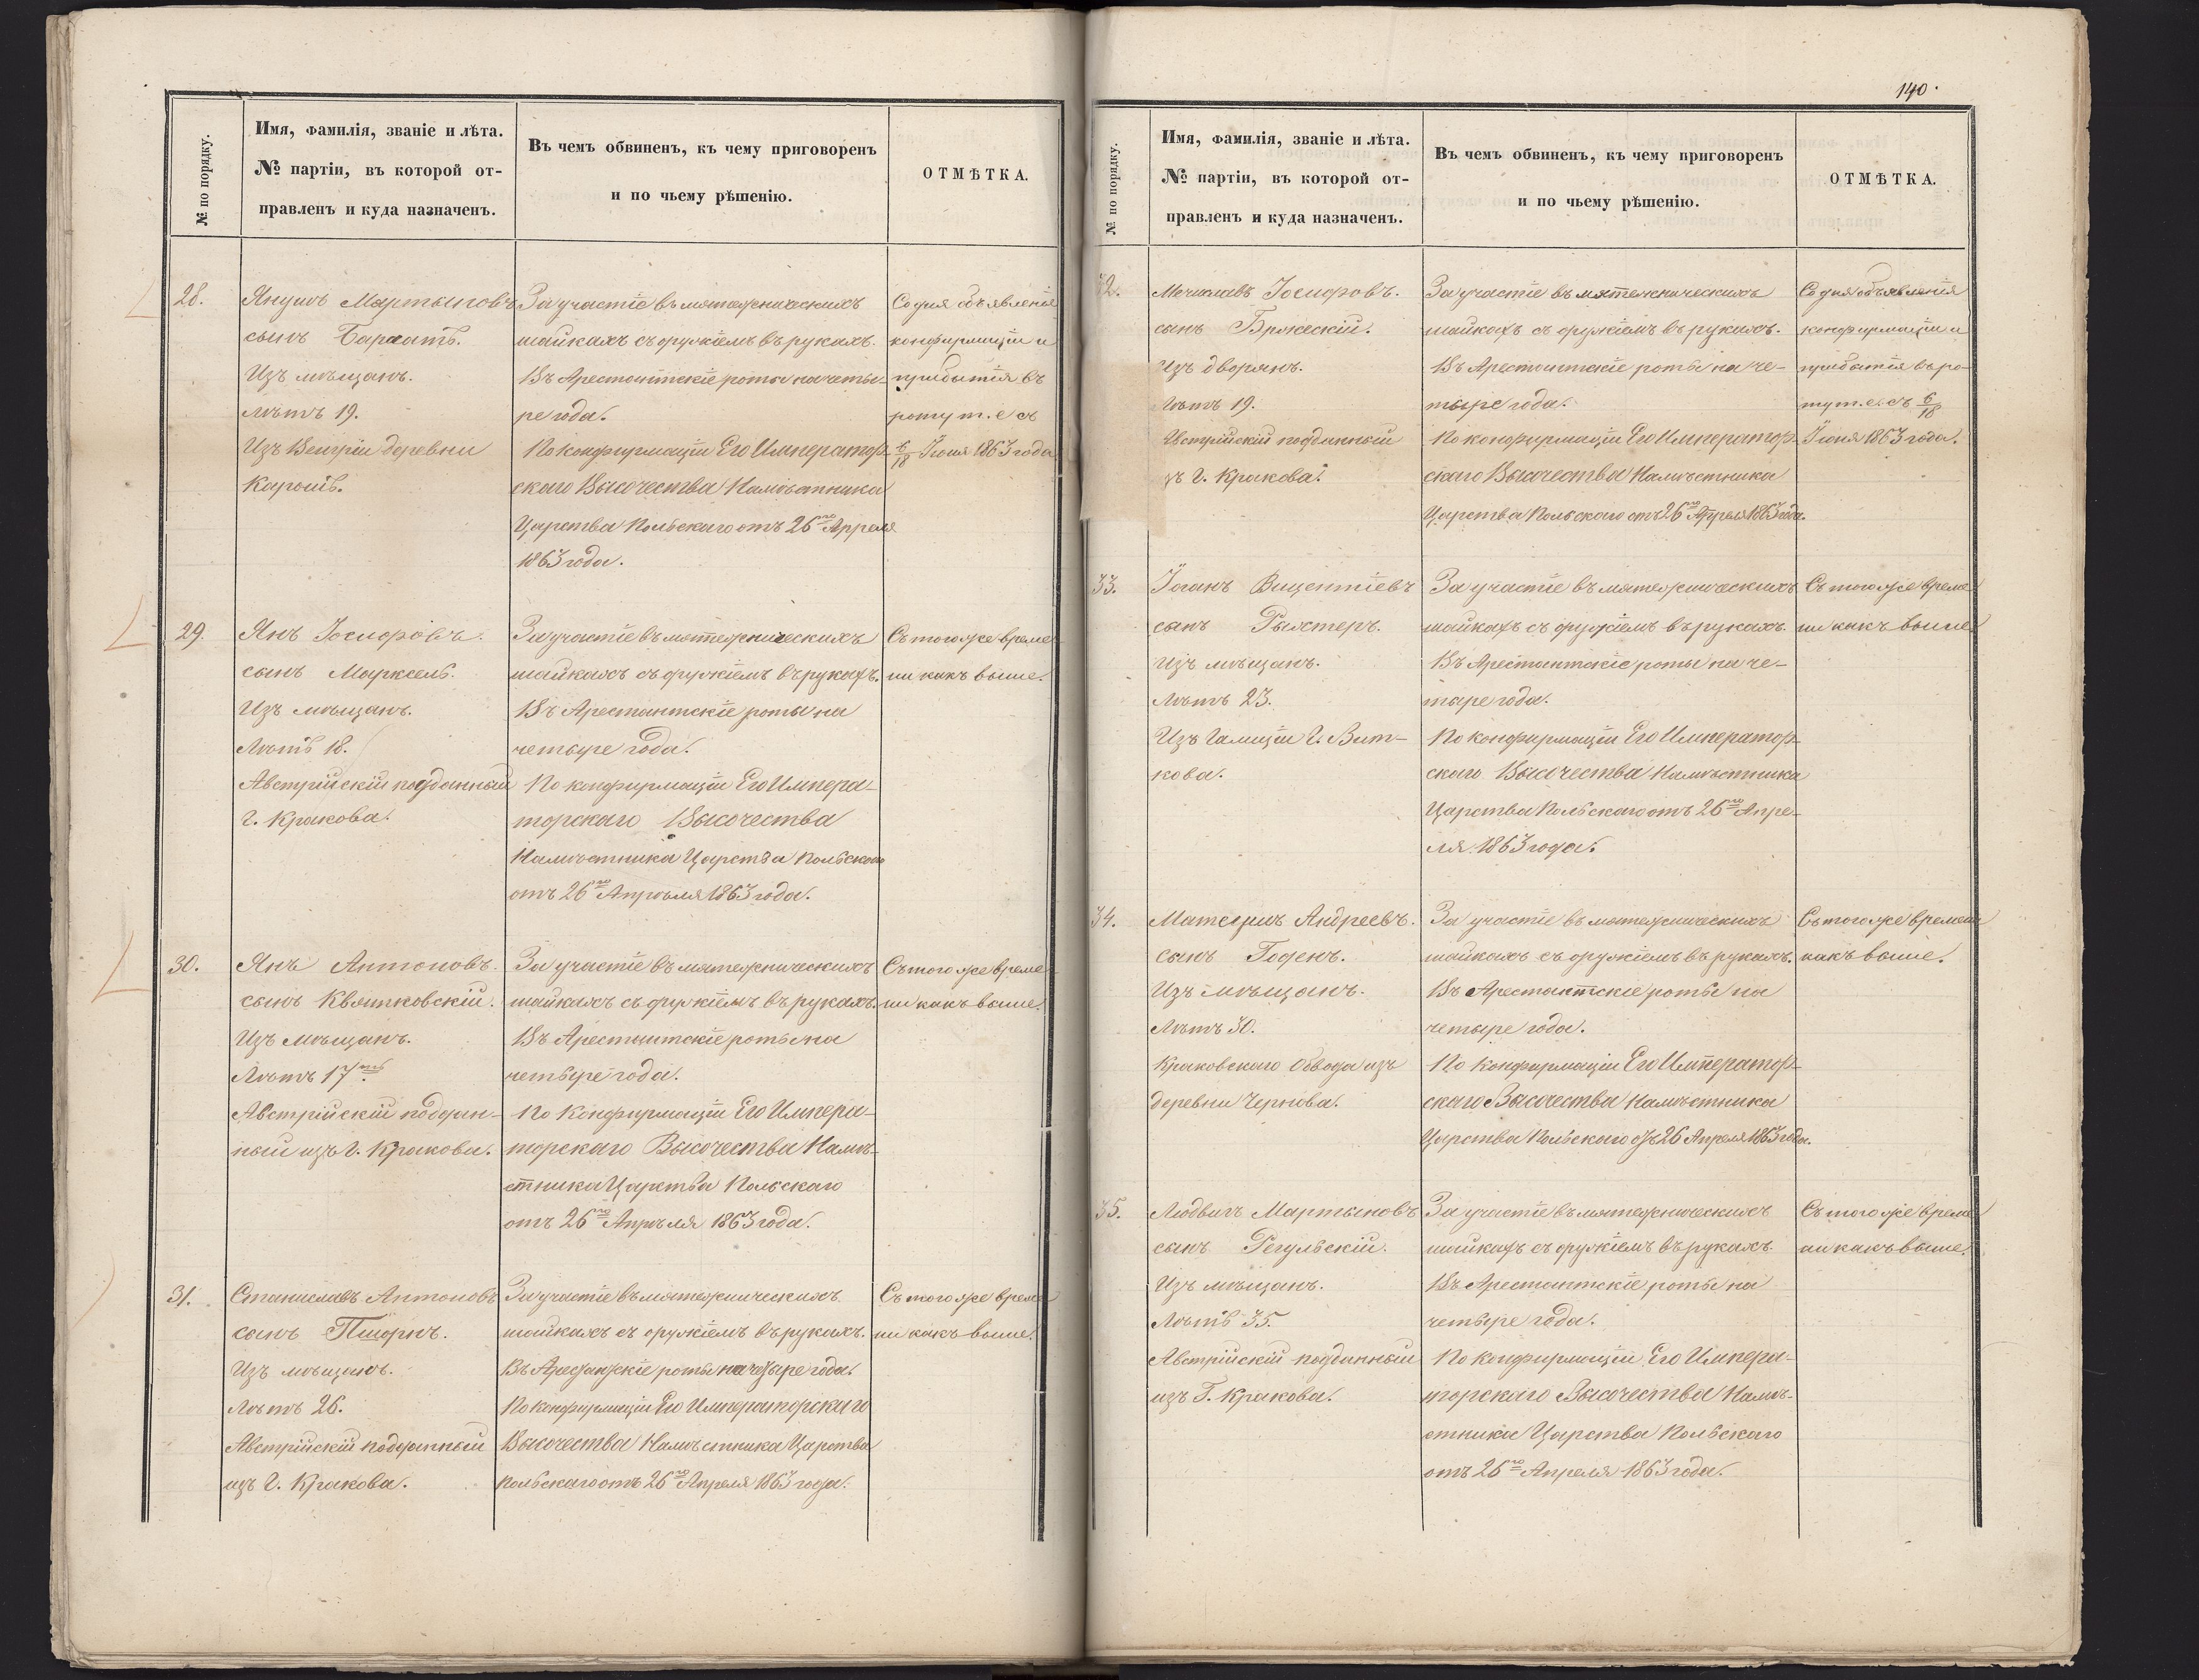 № по порядку.
Имя, фамилія, званіе и лѣта.
№ партіи, въ которой от-
правленъ и куда назначенъ.
Въ чемъ обвиненъ, къ чему приговоренъ
и по чьему рѣшенію.
ОТМѢТКА.
28.
Янушъ Мартыновъ
сынъ
Изъ мѣщанъ.
Лѣтъ 19.
Изъ Венгріи деревни
За участіе въ мятежническихъ
шайкахъ съ оружіемъ въ рукахъ.
Въ Арестантскіе роты на четы-
ре года.
По конфирмаціи Его Император-
скаго Высочества Намѣстника
Царства Польскаго отъ 26го Апреля
1863 года.
Со дня объявленія
конфирмаціи и
прибытія въ
роту т. е. съ
6/18 Іюня 1863 года
29.
Янъ Іосифовъ
сынъ Марксель.
Изъ мѣщанъ.
Лѣтъ 18.
Австрійскій подданный
г. Кракова.
За участіе въ мятежническихъ
шайкахъ съ оружіемъ въ рукахъ.
Въ Арестантскіе роты на
четыре года.
По конфирмаціи Его Импера-
торскаго Высочества
Намѣстника Царства Польскаго
отъ 26го Апрѣля 1863 года.
Съ того же време-
ни какъ выше.
30.
Янъ Антоновъ
сынъ Квятковскій.
Изъ мѣщанъ.
Лѣтъ 17ть.
Австрійскій поддан-
ный изъ г. Кракова.
За участіе въ мятежническихъ
шайкахъ съ оружіемъ въ рукахъ.
Въ Арестантскіе роты на
четыре года.
По Конфирмаціи Его Импера-
торскаго Высочества Намѣ-
стника Царства Польскаго
отъ 26го Апрѣля 1863 года.
Съ того же време-
ни какъ выше.
31.
Станиславъ Антоновъ
сынъ Пшорнъ.
Изъ мѣщанъ.
Лѣтъ 26.
Австрійскій подданный
изъ г. Кракова.
За участіе въ мятежническихъ
шайкахъ съ оружіемъ въ рукахъ.
Въ Арестантскіе роты на четыре года.
По конфирмаціи Его Императорскаго
Высочества Намѣстника Царства
Польскаго отъ 26го Апреля 1863 года.
Съ того же време-
ни какъ выше.
140.
№ по порядку.
Имя, фамилія, званіе и лѣта.
№ партіи, въ которой от-
правленъ и куда назначенъ.
Въ чемъ обвиненъ, къ чему приговоренъ
и по чьему рѣшенію.
ОТМѢТКА.
32.
Мечиславъ Іосифовъ.
сынъ Бржескій.
Изъ дворянъ.
Лѣтъ 19.
Австрійскій подданный
г. Кракова.
За участіе въ мятежническихъ
шайкахъ съ оружіемъ въ рукахъ.
Въ Арестантскіе роты на че-
тыре года.
По конфирмаціи Его Император-
скаго Высочества Намѣстника
Царства Польскаго отъ 26го Апреля 1863 года.
Со дня объявленія
конфирмаціи и
прибытія въ ро-
ту т. е. съ 6/18
Іюня 1863 года.
33.
Іоганъ Вицентіевъ
сынъ Рыхтеръ.
Изъ мѣщанъ.
Лѣтъ 23.
Изъ Галиціи г. Вит-
кова.
За участіе въ мятежническихъ
шайкахъ съ оружіемъ въ рукахъ.
Въ Арестантскіе роты на че-
тыре года.
По конфирмаціи Его Император-
скаго Высочества Намѣстника
Царства Польскаго отъ 26го Апре-
ля 1863 года.
Съ того же време-
ни какъ выше.
34.
Андреевъ.
сынъ Годенъ.
Изъ мѣщанъ.
Лѣтъ 30.
Краковскаго Обвода изъ
деревни Чернова.
За участіе въ мятежническихъ
шайкахъ съ оружіемъ въ рукахъ.
Въ Арестантскіе роты на
четыре года.
По конфирмаціи Его Император-
скаго Высочества Намѣстника
Царства Польскаго отъ 26 Апреля 1863 года.
Съ того же времени
какъ выше.
35.
Людвигъ Мартыновъ
сынъ Регульскій.
Изъ мѣщанъ.
Лѣтъ 35.
Австрійскій подданный
изъ Г. Кракова.
За участіе въ мятежническихъ
шайкахъ съ оружіемъ въ рукахъ.
Въ Арестантскіе роты на
четыре года.
По конфирмаціи Его Импера-
торскаго Высочества Намѣ-
стника Царства Польскаго
отъ 26го Апреля 1863 года.
Съ того же време-
ни какъ выше.